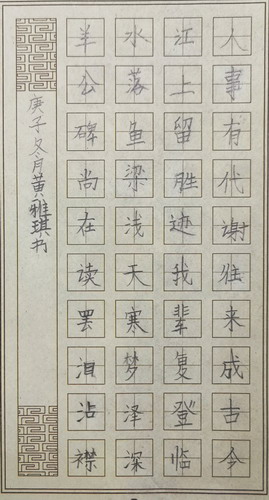 人事有代谢往来成古今
江上留胜迹我辈复登临
水落鱼梁浅天寒梦泽深
羊公碑尚在读罢泪沾襟
庚子冬月黄雅琪书